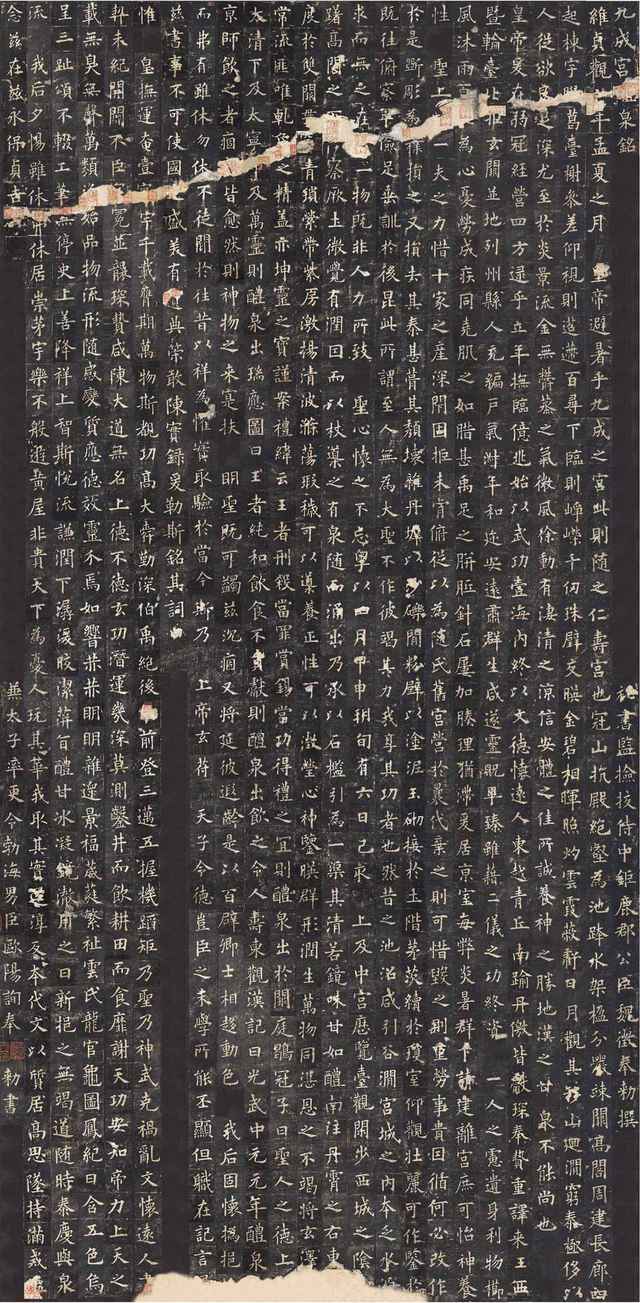 九成宮泉銘 祕書監檢校侍中鉅鹿郡公臣魏徵奉勅撰
維貞觀年孟夏之月 皇帝避暑乎九成之宮此則隨之仁壽宮也冠山抗殿絕壑為池跨水架楹分巖竦闕高閣周建長廊四
起棟宇萬臺榭參差仰視則迢遰百尋下臨則崢嶸千仞珠璧交暎金碧相暉照灼雲霞蔽虧日月觀其移山迴澗窮泰極侈以
人從欲良足深尤至於炎景流金無鬱蒸之氣微風徐動有淒清之涼信安體之佳所誠養神之勝地漢之甘泉不能尚也
皇帝爰在弱冠經營四方逮乎立年撫臨億兆始以武功壹海內終以文德懷遠人東越青丘南踰丹儌皆獻琛奉贄重譯來王西
暨輪臺北拒玄闕並地列州縣人充編戶氣淑年和迩安遠肅群生咸遂靈貺畢臻雖藉二儀之功終資一人之慮遺身利物櫛
風沐雨為心憂勞成疾同堯肌之如腊甚禹足之胼胝針石屢加腠理猶滯爰居京室每弊炎暑群下請建離宮庶可怡神養
性 聖上一夫之力惜十家之產深閉固拒未肯俯從以為隨氏舊宮營於曩代棄之則可惜毀之則重勞事貴因循何必改作
於是斲彫為樸損之又損去其泰甚葺其頹壞雜丹墀以沙礫間粉壁以塗泥玉砌接於土階茅茨續於瓊室仰觀壯麗可作鑒於
既往俯察卑儉足垂訓於後昆此所謂至人無為大聖不作彼竭其力我享其功者也然昔之池沼咸引谷澗宮城之內本乏水源
求而無之在一物既非人力所致 聖心懷之不忘粵以四月甲申朔旬有六日己亥 上及中宮歷覽臺觀閑步西城之陰
躊躇高閣之俯察厥土微覺有潤因而以杖導之有泉隨而涌出乃承以石檻引為一渠其清若鏡味甘如醴南注丹霄之右東
度於雙闕青瑣縈帶紫房激揚清波滌蕩瑕穢可以導養正性可以澂瑩心神鑒暎群形潤生萬物同湛恩之不竭將玄澤
常流匪唯乾象之精蓋亦坤靈之寶謹案禮緯云王者刑殺當罪賞錫當功得禮之宜則醴泉出於闕庭鶡冠子曰聖人之德上
太清下及太寧中及萬靈則醴泉出瑞應圖曰王者純和飲食不貢獻則醴泉出飲之令人壽東觀漢記曰光武中元元年醴泉
京師飲之者痼皆愈然則神物之來寔扶 明聖既可蠲茲沉痼又將延彼遐齡是以百辟卿士相趨動色 我后固懷撝挹
而弗有雖休勿休不徒聞於往昔以祥為懼實取驗於當今斯乃 上帝玄符 天子令德豈臣之末學所能丕顯但職在記言
茲書事不可使國之盛美有遺典策敢陳實錄爰勒斯銘其詞曰
惟 皇撫運奄壹寰宇千載膺期萬物斯覩功高大舜勤深伯禹絕後前登三邁五握機蹈矩乃聖乃神武克禍亂文懷遠人書
契未紀開闢不臣冠冕並襲琛贄咸陳大道無名上德不德玄功潛運幾深莫測鑿井而飲耕田而食靡謝天功安知帝力上天之
載無臭無聲萬類資始品物流形隨感變質應德效靈介焉如響赫赫明明雜遝景福葳蕤繁祉雲氏龍官龜圖鳳紀日含五色烏
呈三趾頌不輟工筆無停史上善降祥上智斯悅流謙潤下潺湲皎潔蓱旨醴甘冰凝鏡澈用之日新挹之無竭道隨時泰慶與泉
流 我后夕惕雖休弗休居崇茅宇樂不般遊黃屋非貴天下為憂人玩其華我取其實還淳反本代文以質居高思墜持滿戒溢
念茲在茲永保貞吉 兼太子率更令勃海男臣歐陽詢奉勅書